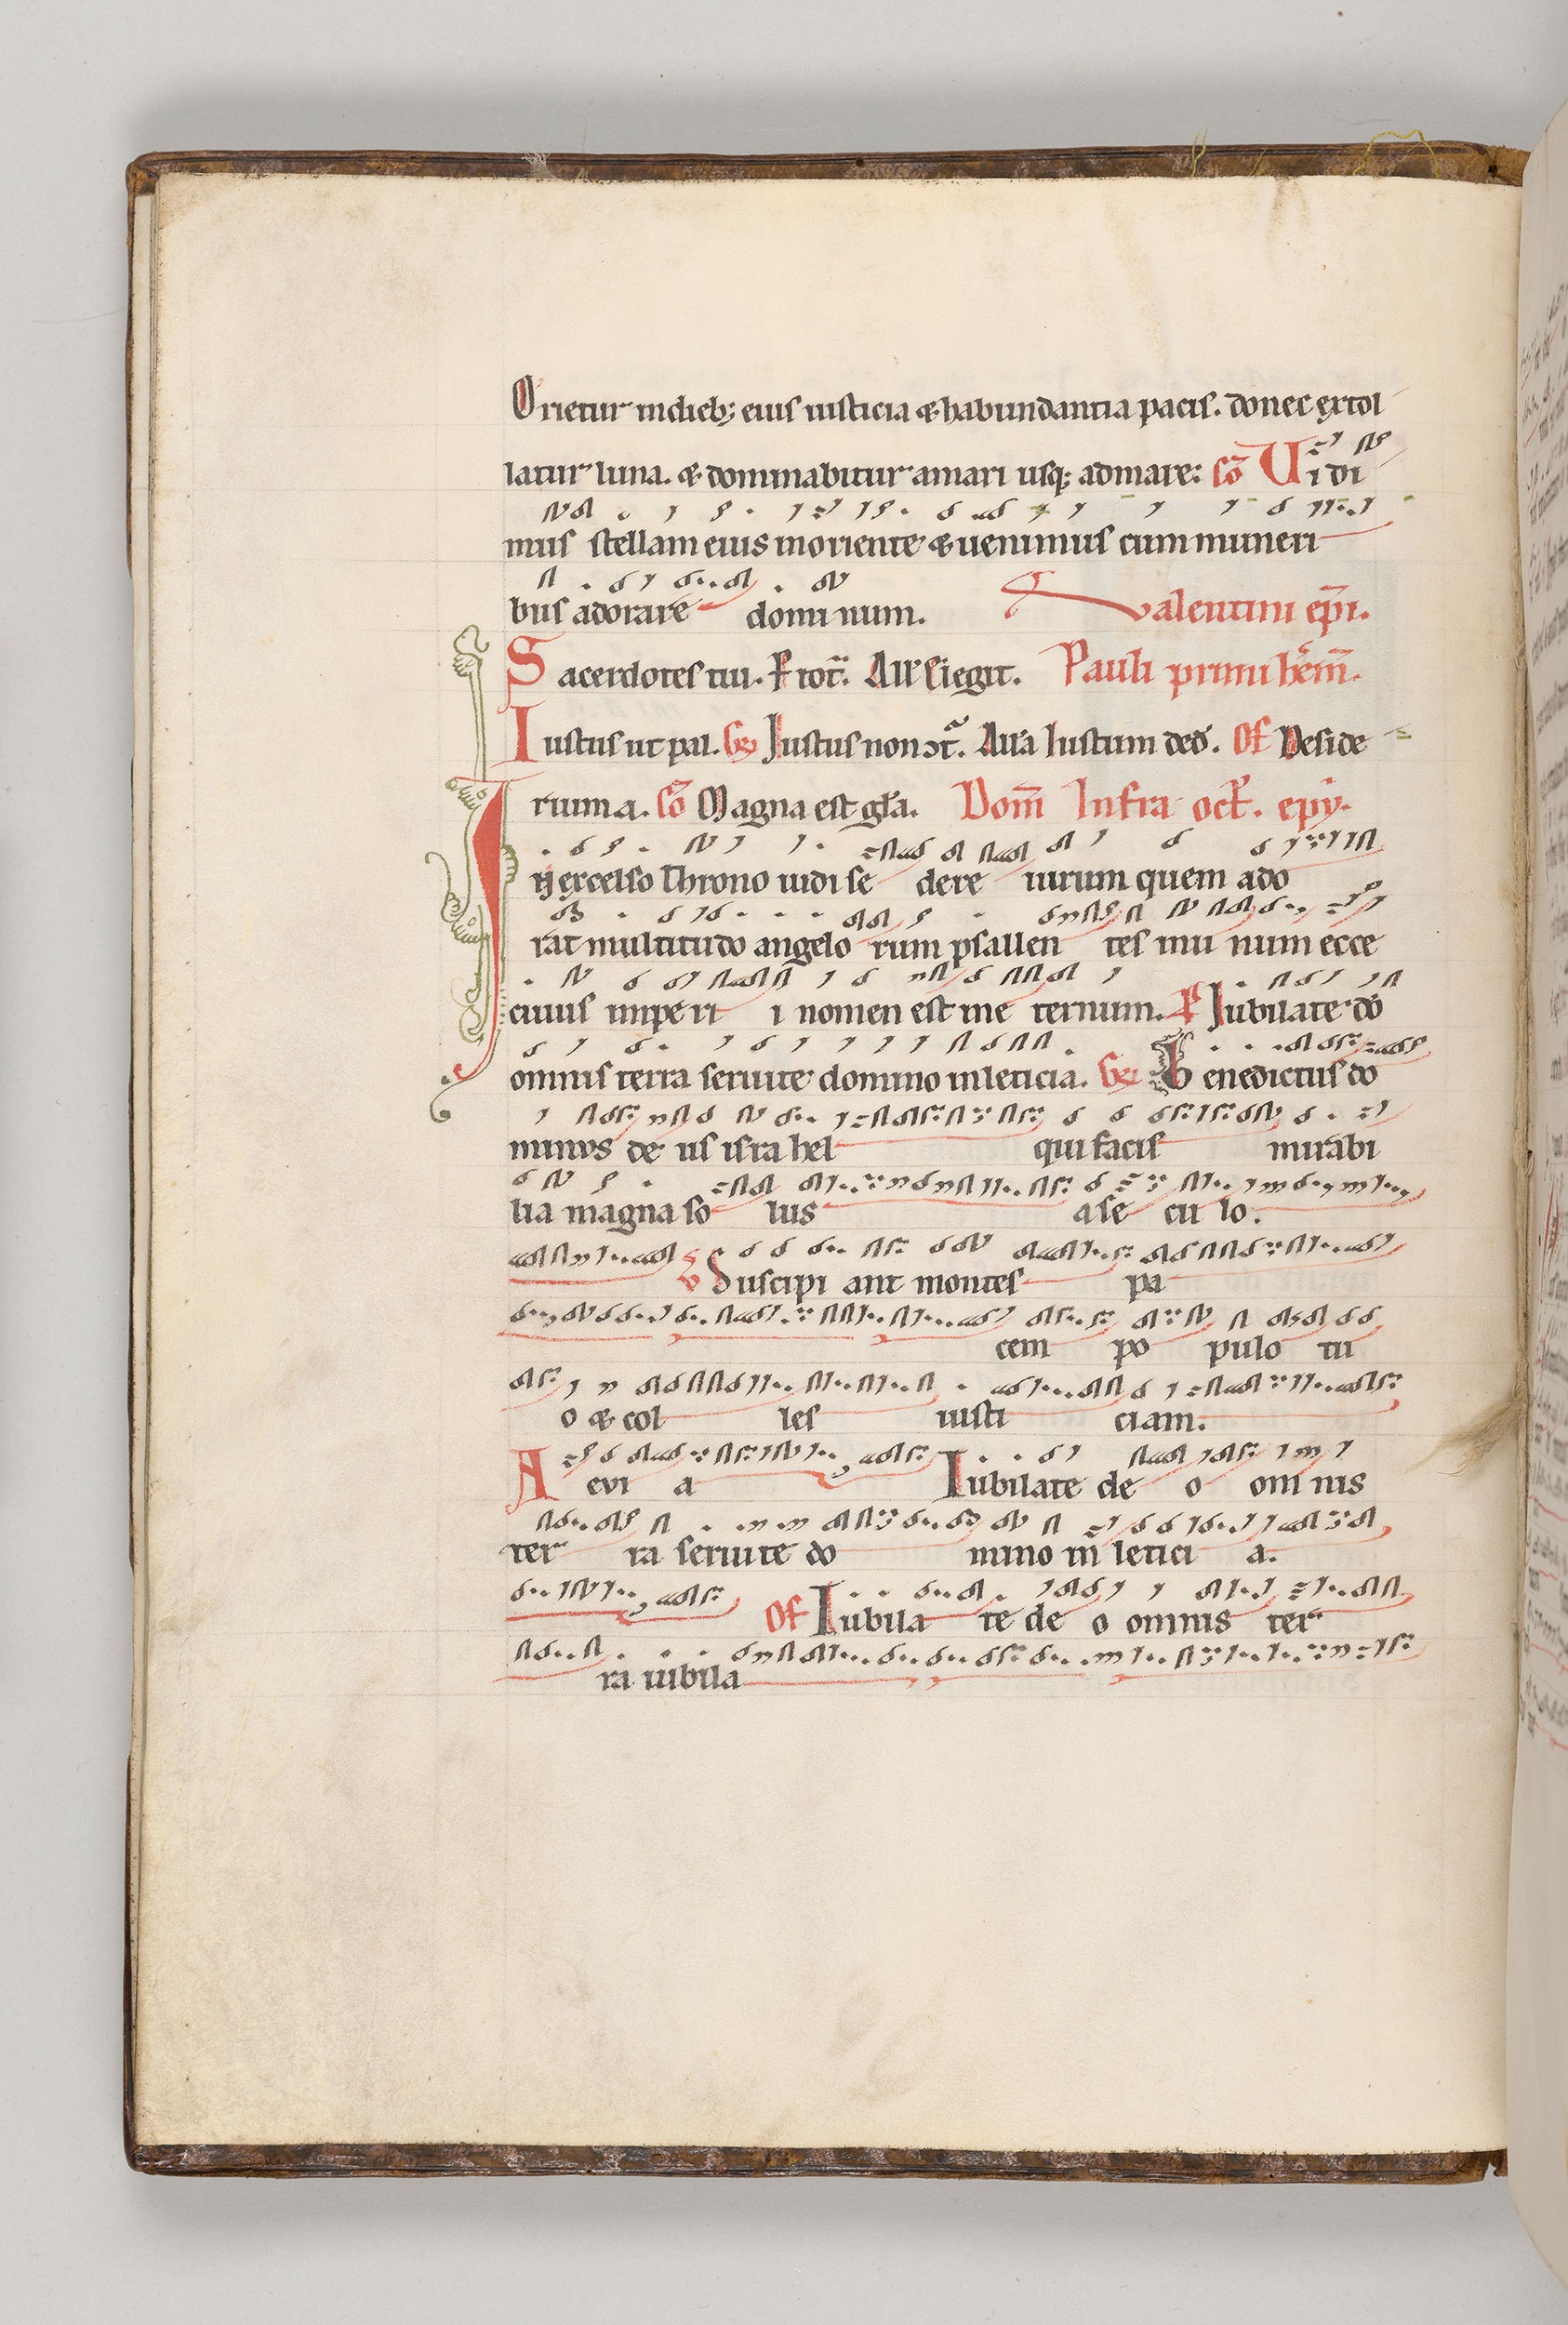 Orietur indieb; eius iusticia &habundantia pacis. donec extol
latur luna. & dominabitur amari usq; admare: Co̅ Uidi
mus stellam eius inoriente & uenimus cum muneri
bus adorare dominum. Valentini ep̅i.
Sacerdotes tui. All' Elegit. Pauli primi
Iustus ut pal. Iustus non Iustum ded. Of Deside
rium.a. Co̅ Magna est gl̅a. Dom̅ Infra oct. epy.
In excelso throno uidi se dere uirum quem ado
rat multitudo angelo rum psallen tes in u num ecce
cuius imperi i nomen est in e ternum. Iubilate do
omnis terra seruite domino inleticia. Benedictus do
minus de us isra hel qui facis mirabi
lia magna so lus a se cu lo.
Suscipi ant montes pa
cem po pulo tu
o & col les iusti ciam.
A evi a Iubilate de o om nis
ter ra seruite do mino in̅ letici a.
Of Iubila te de o omnis ter
ra iubila